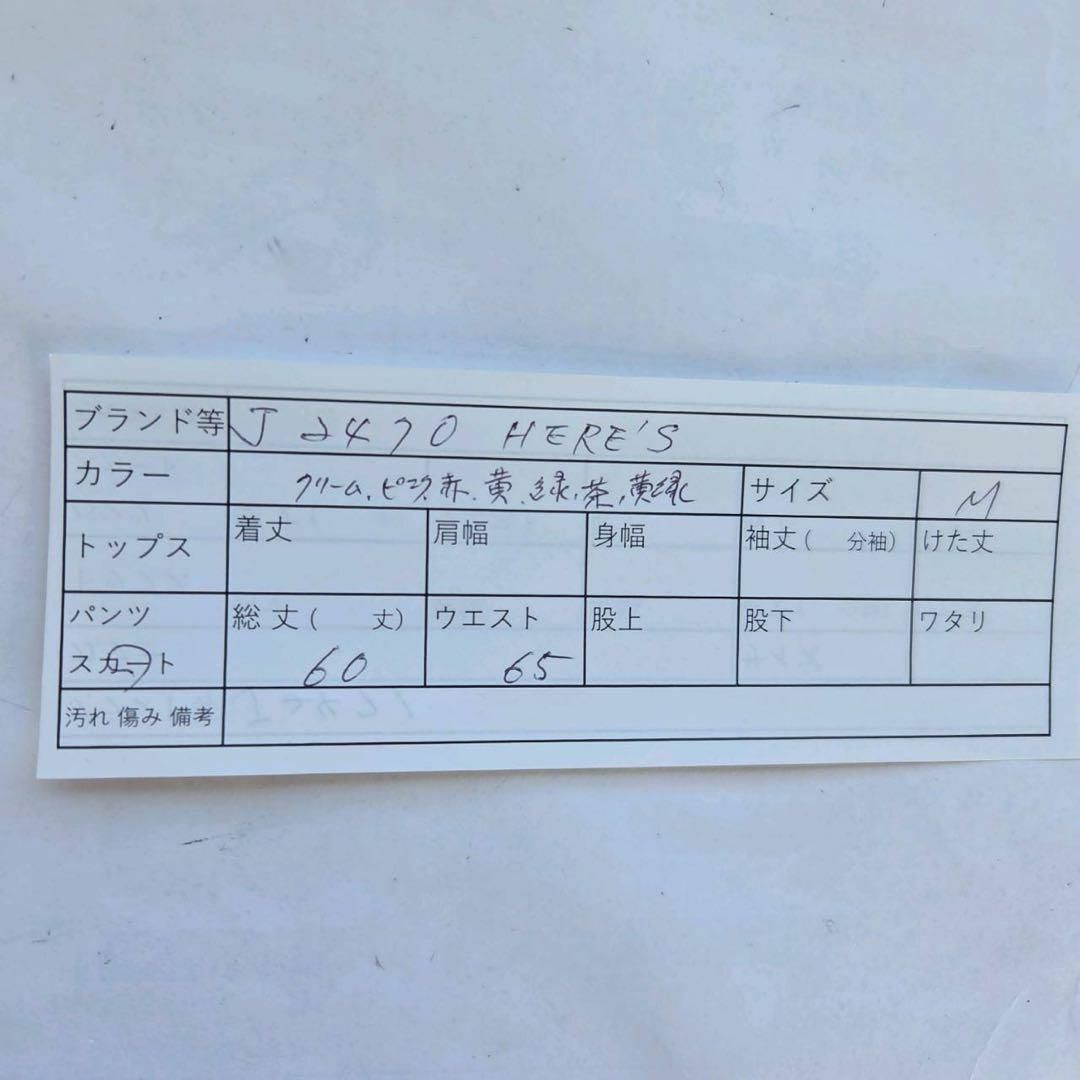 ブランド等 J 2470 HERE'S
カラー クリーム、ピンク、赤、黄、緑、茶、黄緑 サイズ M
トップス 着丈 肩幅 身幅 袖丈( 分袖) けた丈
パンツ 総丈( 丈) ウエスト 股上 股下 ワタリ
スカート 60 65
汚れ 傷み 備考